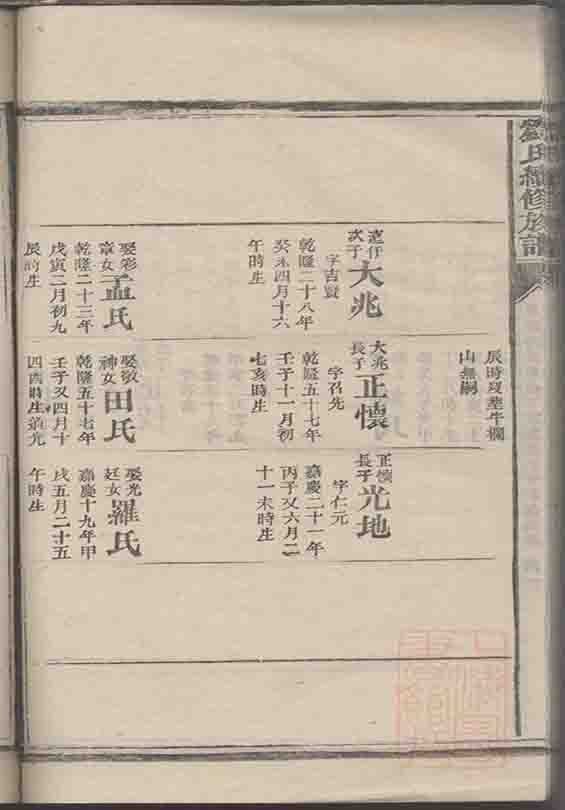 劉氏續修族譜
辰時歿葬牛欄
山無嗣
次子
大兆
字吉賢
乾隆二十八年
癸未四月十六
午時生
娶彩
章女
孟氏
乾隆二十三年
戊寅二月初九
辰時生
大兆
長子
正懷
字召先
乾隆五十七年
壬子十一月初
七亥時生
娶敬
神女
田氏
乾隆五十七年
壬子又四月十
四酉時生
正懷
長子
光地
字仁元
嘉慶二十一年
丙子又六月二
十一未時生
娶光
廷女
羅氏
嘉慶十九年甲
戌五月二十五
午時生